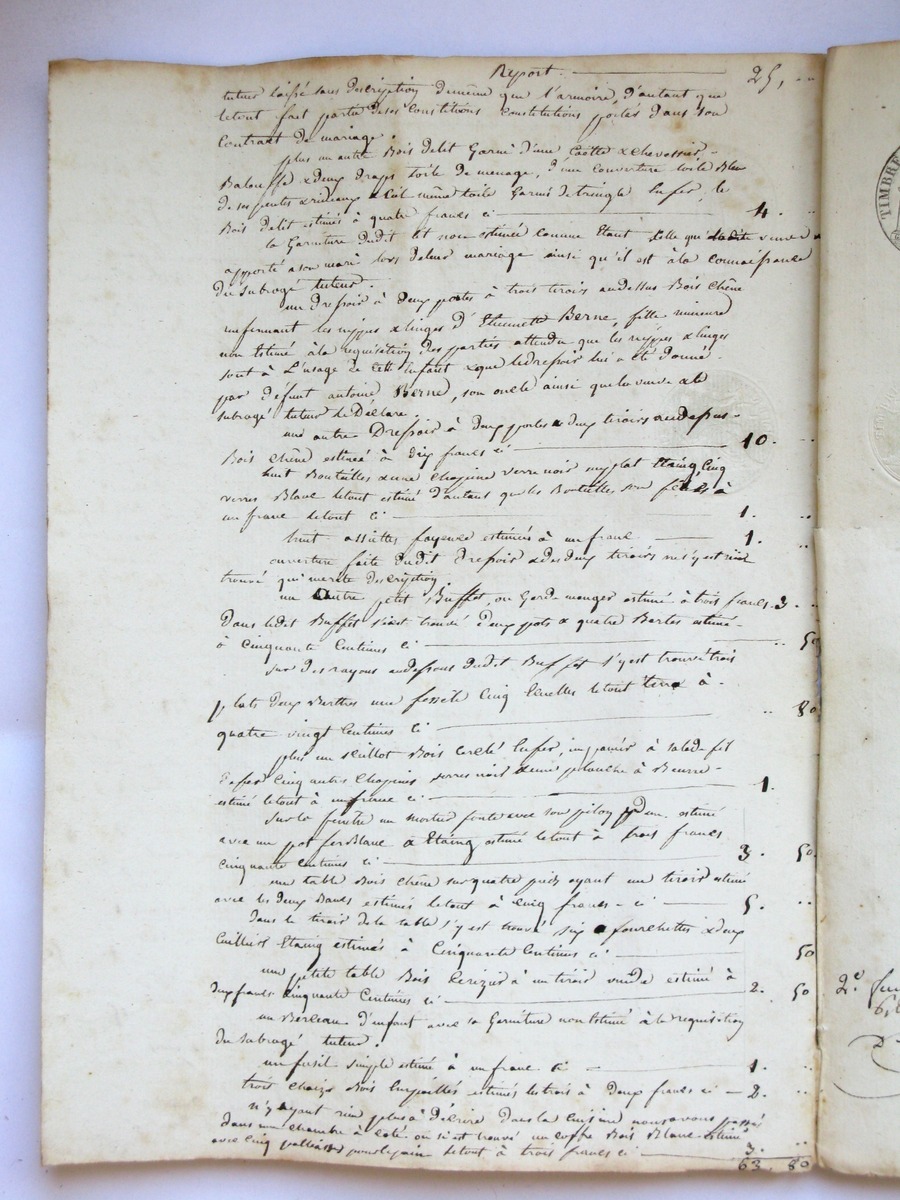 Report. 25, ..
tuteur laissé sans description de même que l'armoire, d'autant que
letout fait partie de ses Constitutions portés dans son
Contract de mariage.
plus un autre Bois delit Garni d'une Coëtte & chevossier,
Balouffe & deux draps toile de menage, d'une couverture toile Bleu
de ses pentes & rideaux & Ciel même toile Garnis de tringle en fer, le
Bois delit estimé à quatre francs ci 4. ..
la Garniture dudit lit non estimée Comme Etant celle qu' ladite veuve a
apporté a son mari lors deleur mariage ainsi qu'il est à la connaissance
du subrogé tuteur.
un Dressoir à deux portes à trois tiroirs au dessus Bois Chêne
renfermant les nippes & linges d' Etiennette Berne, fille mineure
non Estimé à la requisition des parties attendu que les nippes & linges
sont à l'usage de cette Enfant & que ledressoir lui a été donné
par défunt antoine Berne, son oncle ainsi que la veuve & le
subrogé tuteur le Declare.
une autre Dressoir à deux portes & deux tiroirs au dessus
Bois Chêne estimée à dix francs ci 10. ..
huit Bouteilles & une Chopine verre noir un plat Etaing Cinq
verres Blanc letout estimé d'autant que les Bouteilles son felés à
un franc letout ci 1. ..
huit assiettes fayence estimées à un franc 1. ..
ouverture faite dudit Dressoir & des deux tiroirs ne s'y est rien
trouvé qui merite description.
un Autre petit Buffet, ou Garde manger estimé à trois francs 3. ..
Dans ledit Buffet s'est trouvé deux pots & quatre Bertes estimé
à Cinquante Centimes ci .. 50
sur des rayons audessous dudit Buffet s'y est trouvé trois
plats deux Berthes une Cinq Ecuelles letout terre à
quatre vingt Centimes ci .. 80
plus un seillot Bois Cerclé en fer, un panier à salade fil
de fer Cinq autres Chopines verres noir & une planche à Beurre
estimé letout à un franc ci 1.
sur la fenêtre un mortier fonte avec son pilon estimé
avec un pot fer Blanc & Etaing estimé letout à trois francs
Cinquante Centimes ci 3. 50.
une table Bois Chêne sur quatre pieds ayant un tiroir estimé
avec les deux Bancs estimés letout à Cinq francs ci 5. ..
Dans le tiroir de la table s'y est trouvé six fourchettes & deux
Cuilliers Etaing estimés à Cinquante Centimes ci 50
une petite table Bois Cerizier à un tiroir vuide estimé à
deux francs Cinquante Centimes ci 2. 50
un Berceau d'enfant avec sa Garniture non Estimé à la requisition
du subrogé tuteur.
un fusil simple estimé à un franc ci 1. ..
trois chaizes Bois Empaillés estimés les trois à deux francs ci 2. ..
n'y ayant rien plus à décrire dans la Cuisine nous avons passé
dans une chambre à Coté, où s'est trouvé un Coffre Bois Blanc estimé
avec Cinq paillassons pour le pain letout à trois francs ci 3. ..
63. 80
TIMBRE
2e